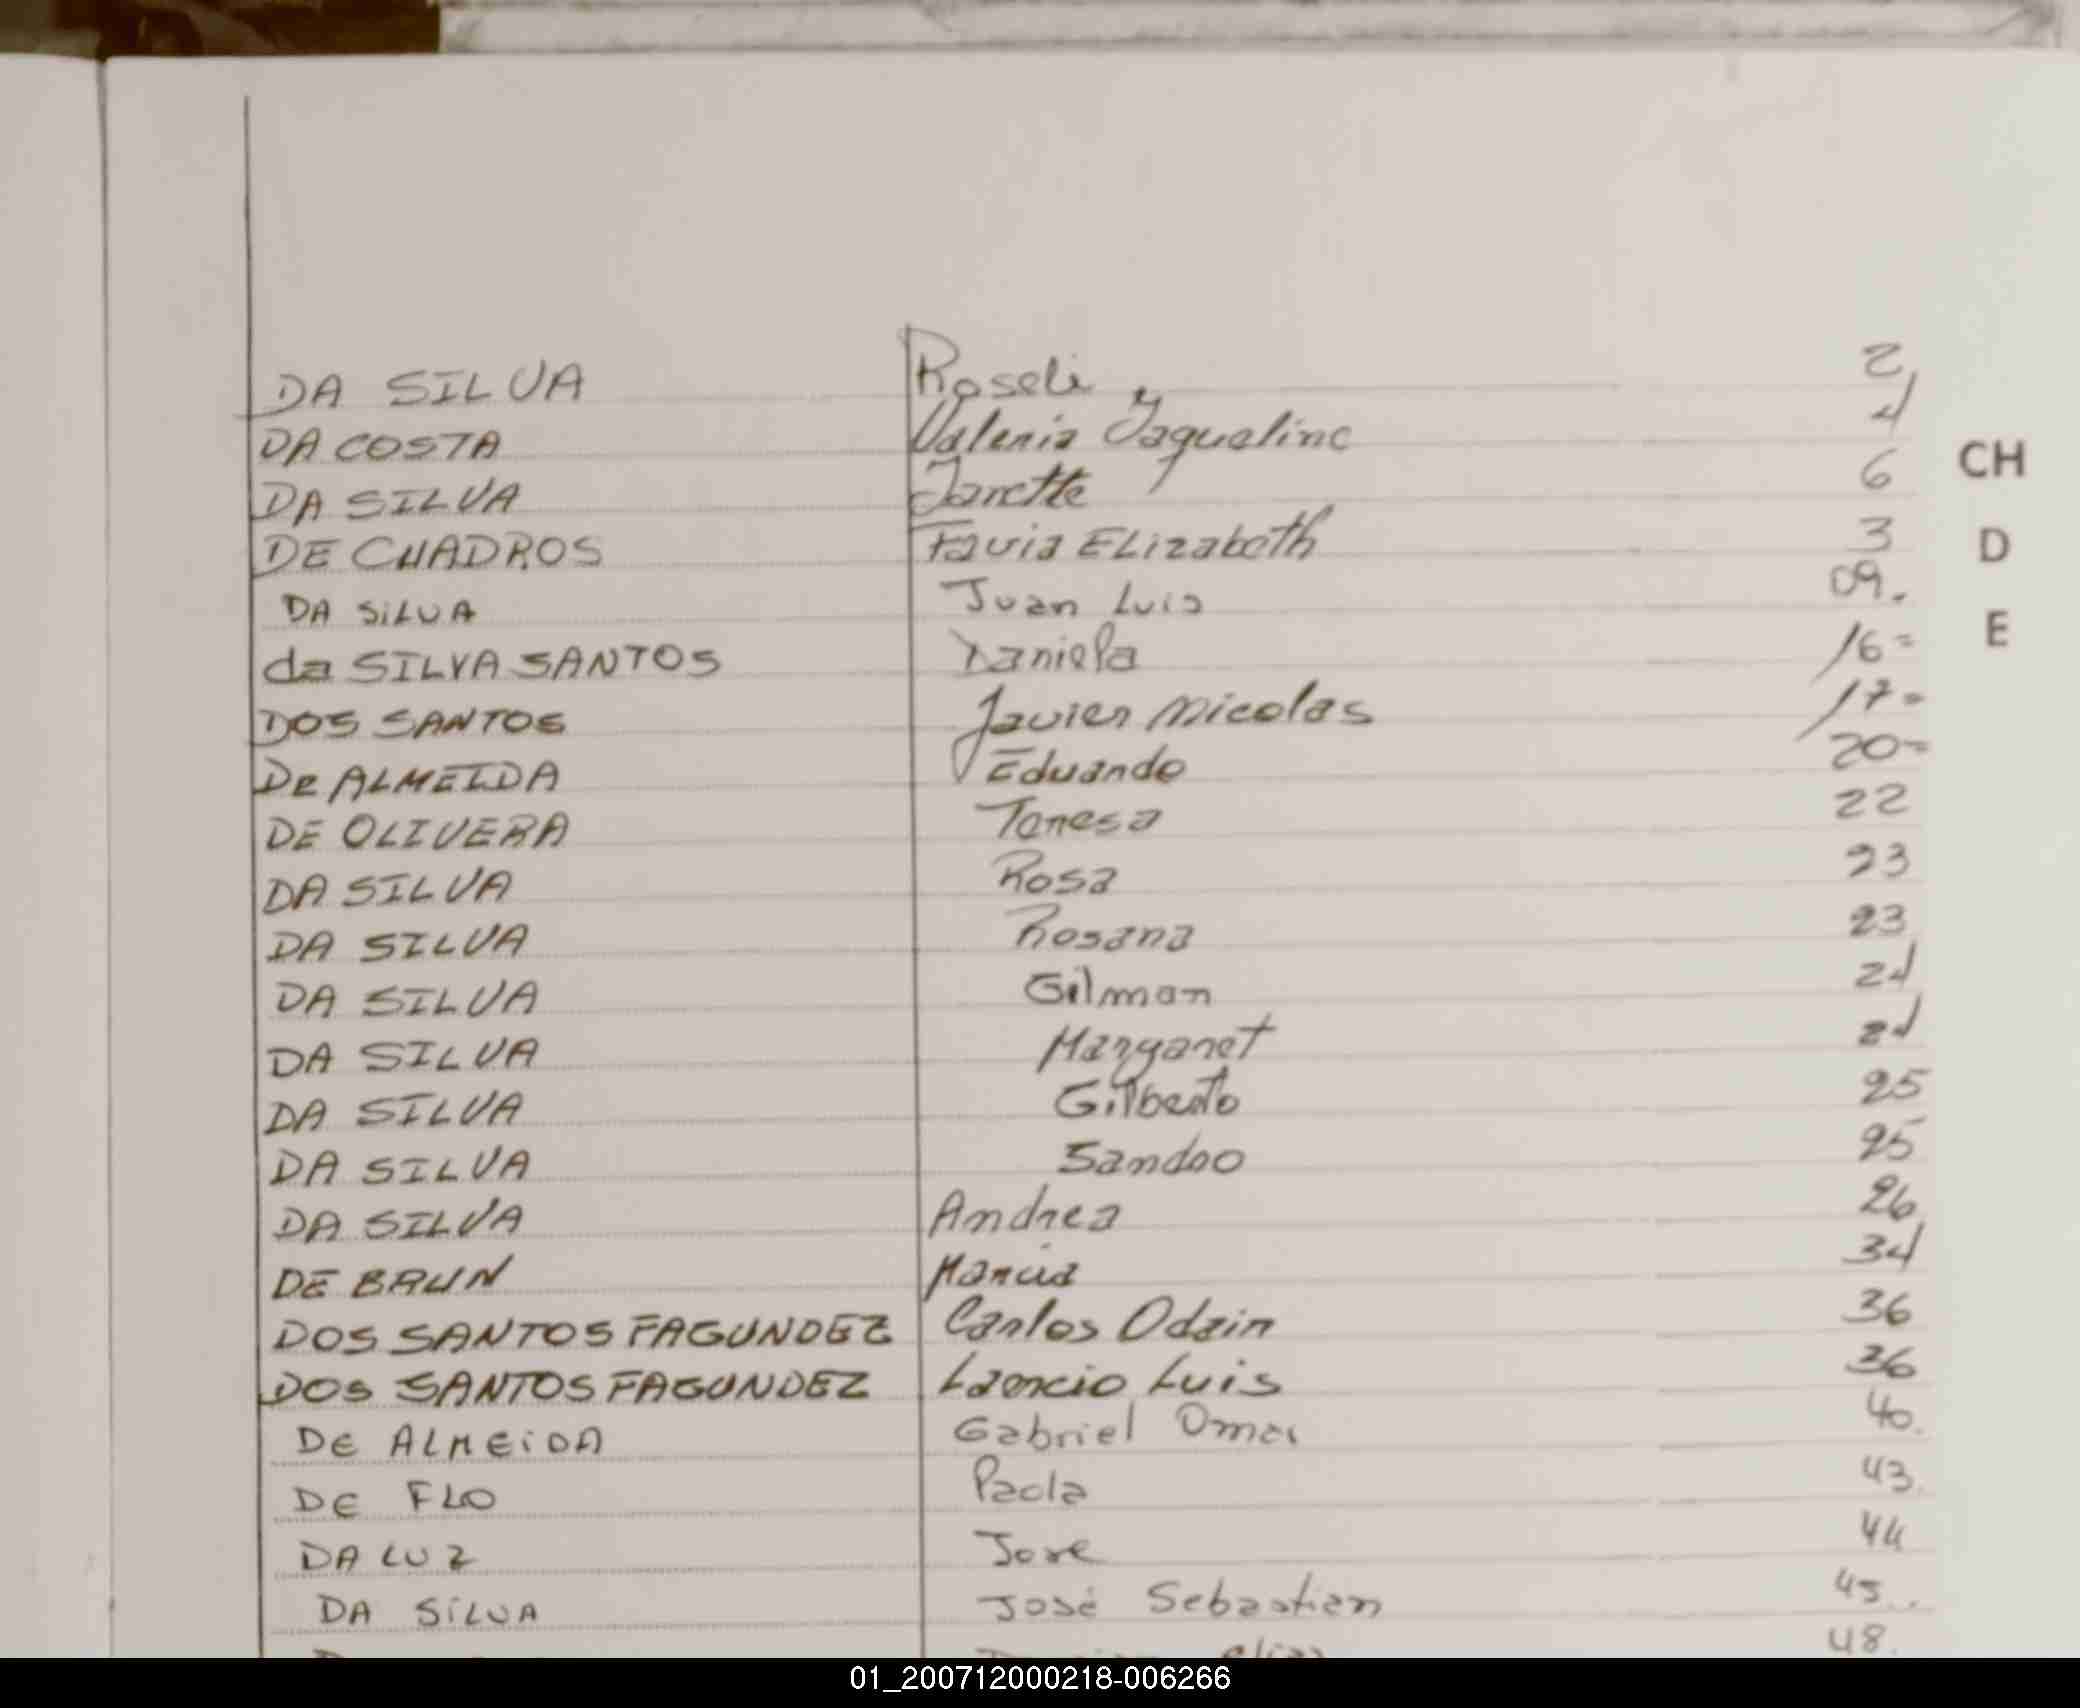 DA SILVA Roseli 2
DA COSTA Valeria Jaqueline 4
DA SILVA Janette 6
DE CUADROS Favia ELizabeth 3
DA SiLVA Juan Luis 09.
da SILVA SANTOS Daniela 16=
DOS SANTOS Javier Nicolas 17=
De ALMEIDA Eduardo 20=
DE OLIVERA Teresa 22
DA SILVA Rosa 23
DA SILVA Rosana 23
DA SILVA Gilmar 24
DA SILVA Margaret 24
DA SILVA Gilberto 25
DA SILVA Sandro 25
DA SILVA Andrea 26
DE BRUN Marcia 34
DOS SANTOS FAGUNDEZ Carlos Odair 36
DOS SANTOS FAGUNDEZ Laercio Luis 36
DE ALMEiDA Gabriel Omar 40.
DE FLO Paola 43.
DA LUZ Jose 44
DA SiLVA José Sebastian 45..
48.
CH
D
E
01_200712000218-006266